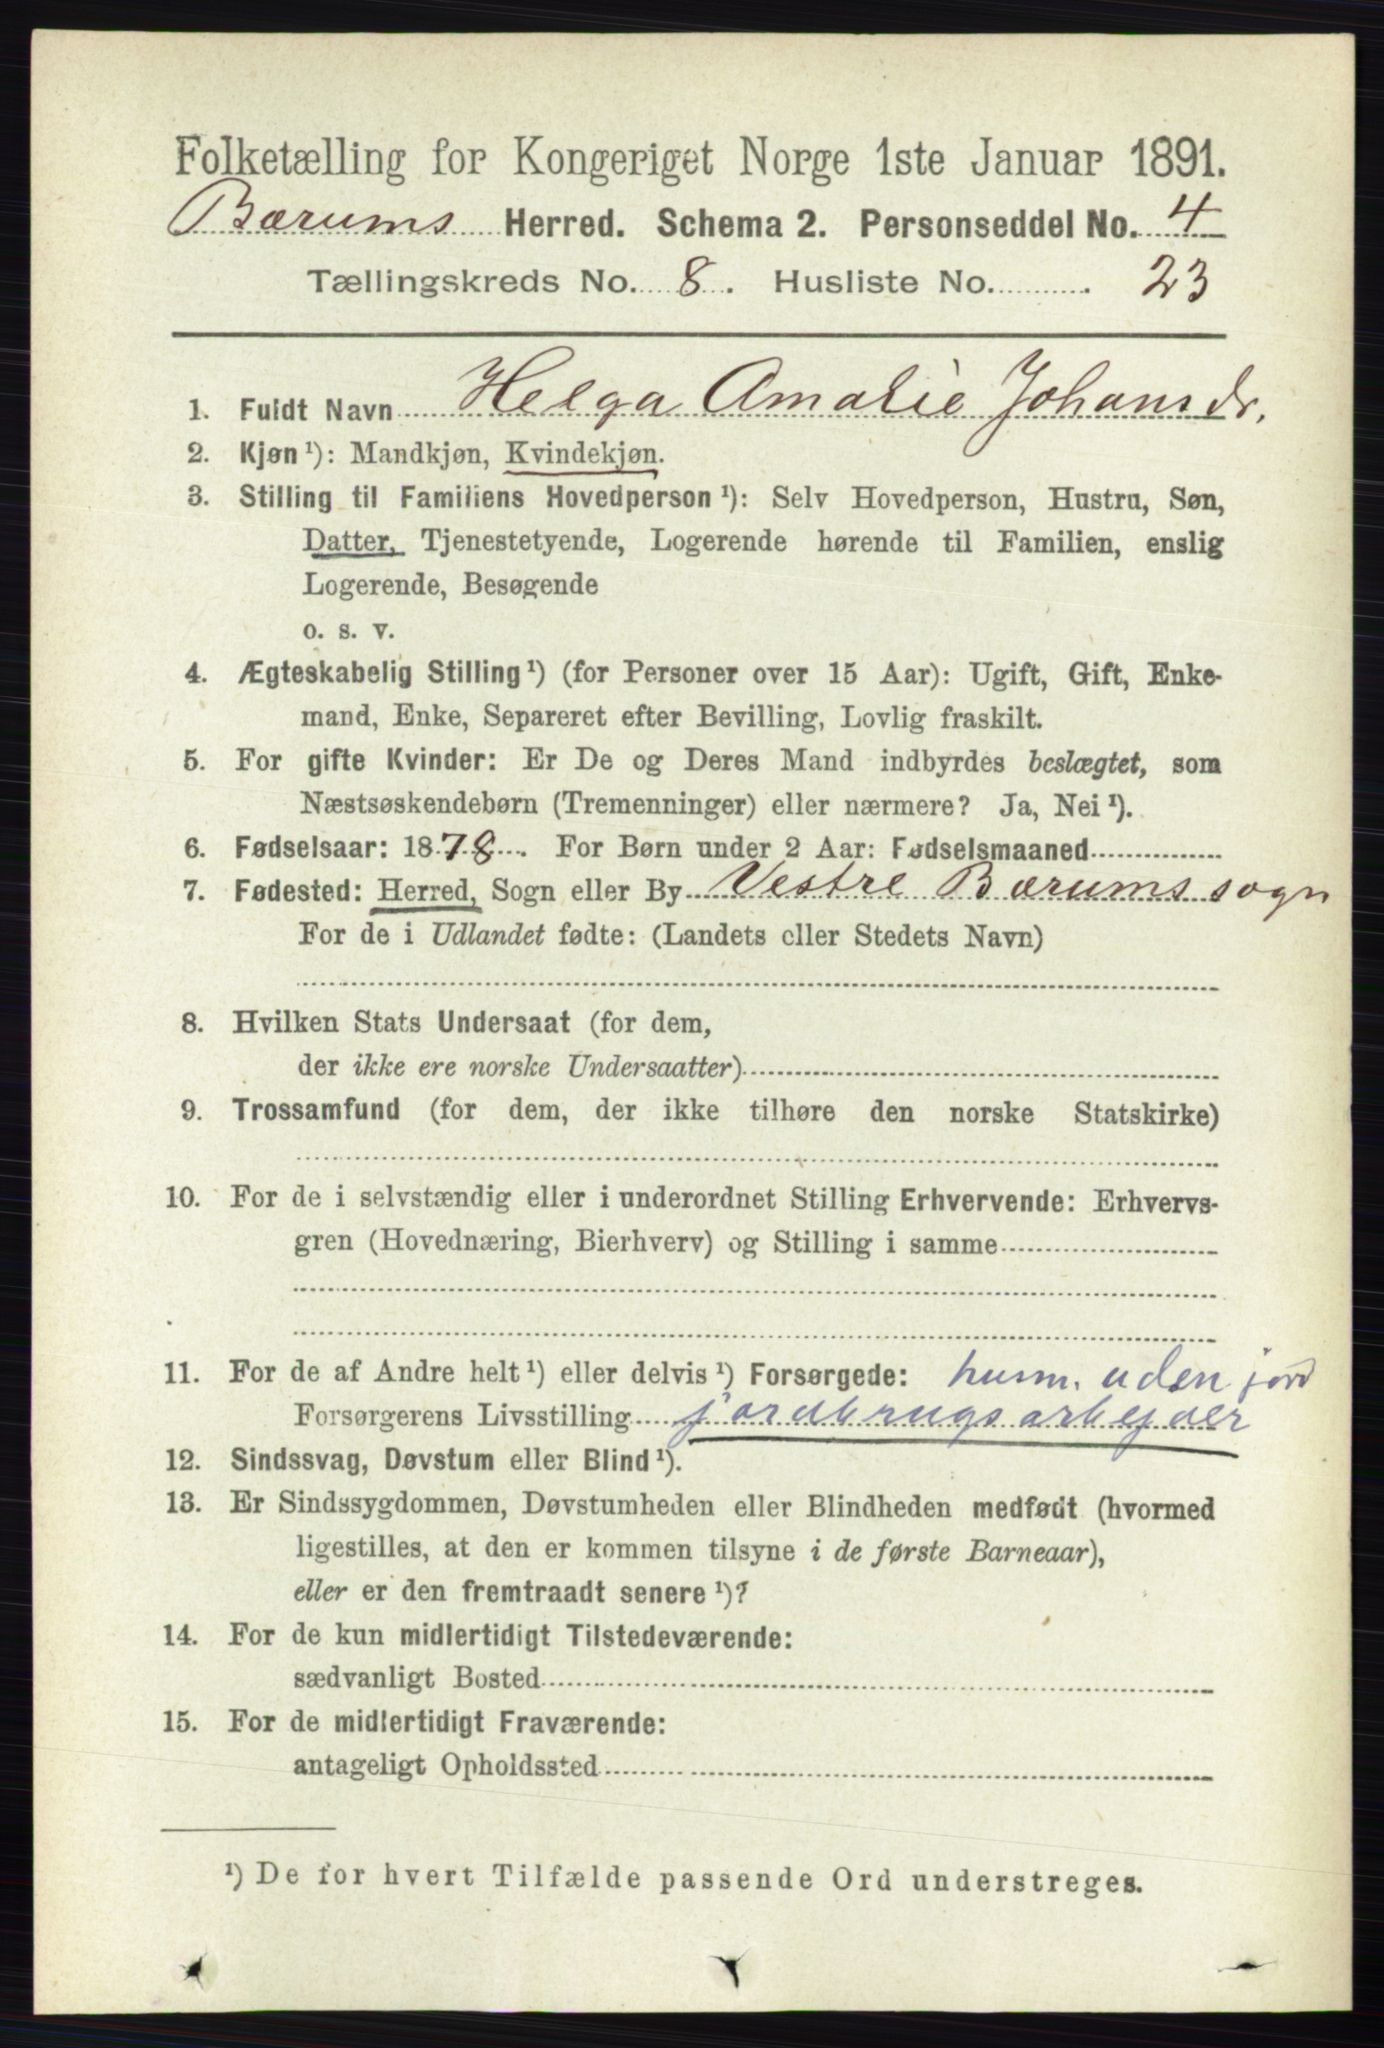 Folketælling for Kongeriget Norge 1ste Januar 1891.
Bærums Herred. Schema 2. Personseddel No. 4
Tællingskreds No. 8. Husliste No. 23
1. Fuldt Navn Helga Amalie Johansdr.
2. Kjøn ¹): Mandkjøn, Kvindekjøn.
3. Stilling til Familiens Hovedperson ¹): Selv Hovedperson, Hustru, Søn,
Datter, Tjenestetyende, Logerende hørende til Familien, enslig
Logerende, Besøgende
o. s. v.
4. Ægteskabelig Stilling ¹) (for Personer over 15 Aar): Ugift, Gift, Enke-
mand, Enke, Separeret efter Bevilling, Lovlig fraskilt.
5. For gifte Kvinder: Er De og Deres Mand indbyrdes beslægtet, som
Næstsøskendebørn (Tremenninger) eller nærmere? Ja, Nei ¹).
6. Fødselsaar: 1878. For Børn under 2 Aar: Fødselsmaaned
7. Fødested: Herred, Sogn eller By Vestre Bærums sogn
For de i Udlandet fødte: (Landets eller Stedets Navn)
8. Hvilken Stats Undersaat (for dem,
der ikke ere norske Undersaatter)
9. Trossamfund (for dem, der ikke tilhøre den norske Statskirke)
10. For de i selvstændig eller i underordnet Stilling Erhvervende: Erhvervs-
gren (Hovednæring, Bierhverv) og Stilling i samme
11. For de af Andre helt ¹) eller delvis ¹) Forsørgede: husm. uden jord
Forsørgerens Livsstilling jordbrugsarbejder
12. Sindssvag, Døvstum eller Blind ¹).
13. Er Sindssygdommen, Døvstumheden eller Blindheden medfødt (hvormed
ligestilles, at den er kommen tilsyne i de første Barneaar),
eller er den fremtraadt senere ¹)?
14. For de kun midlertidigt Tilstedeværende:
sædvanligt Bosted
15. For de midlertidigt Fraværende:
antageligt Opholdssted
¹) De for hvert Tilfælde passende Ord understreges.